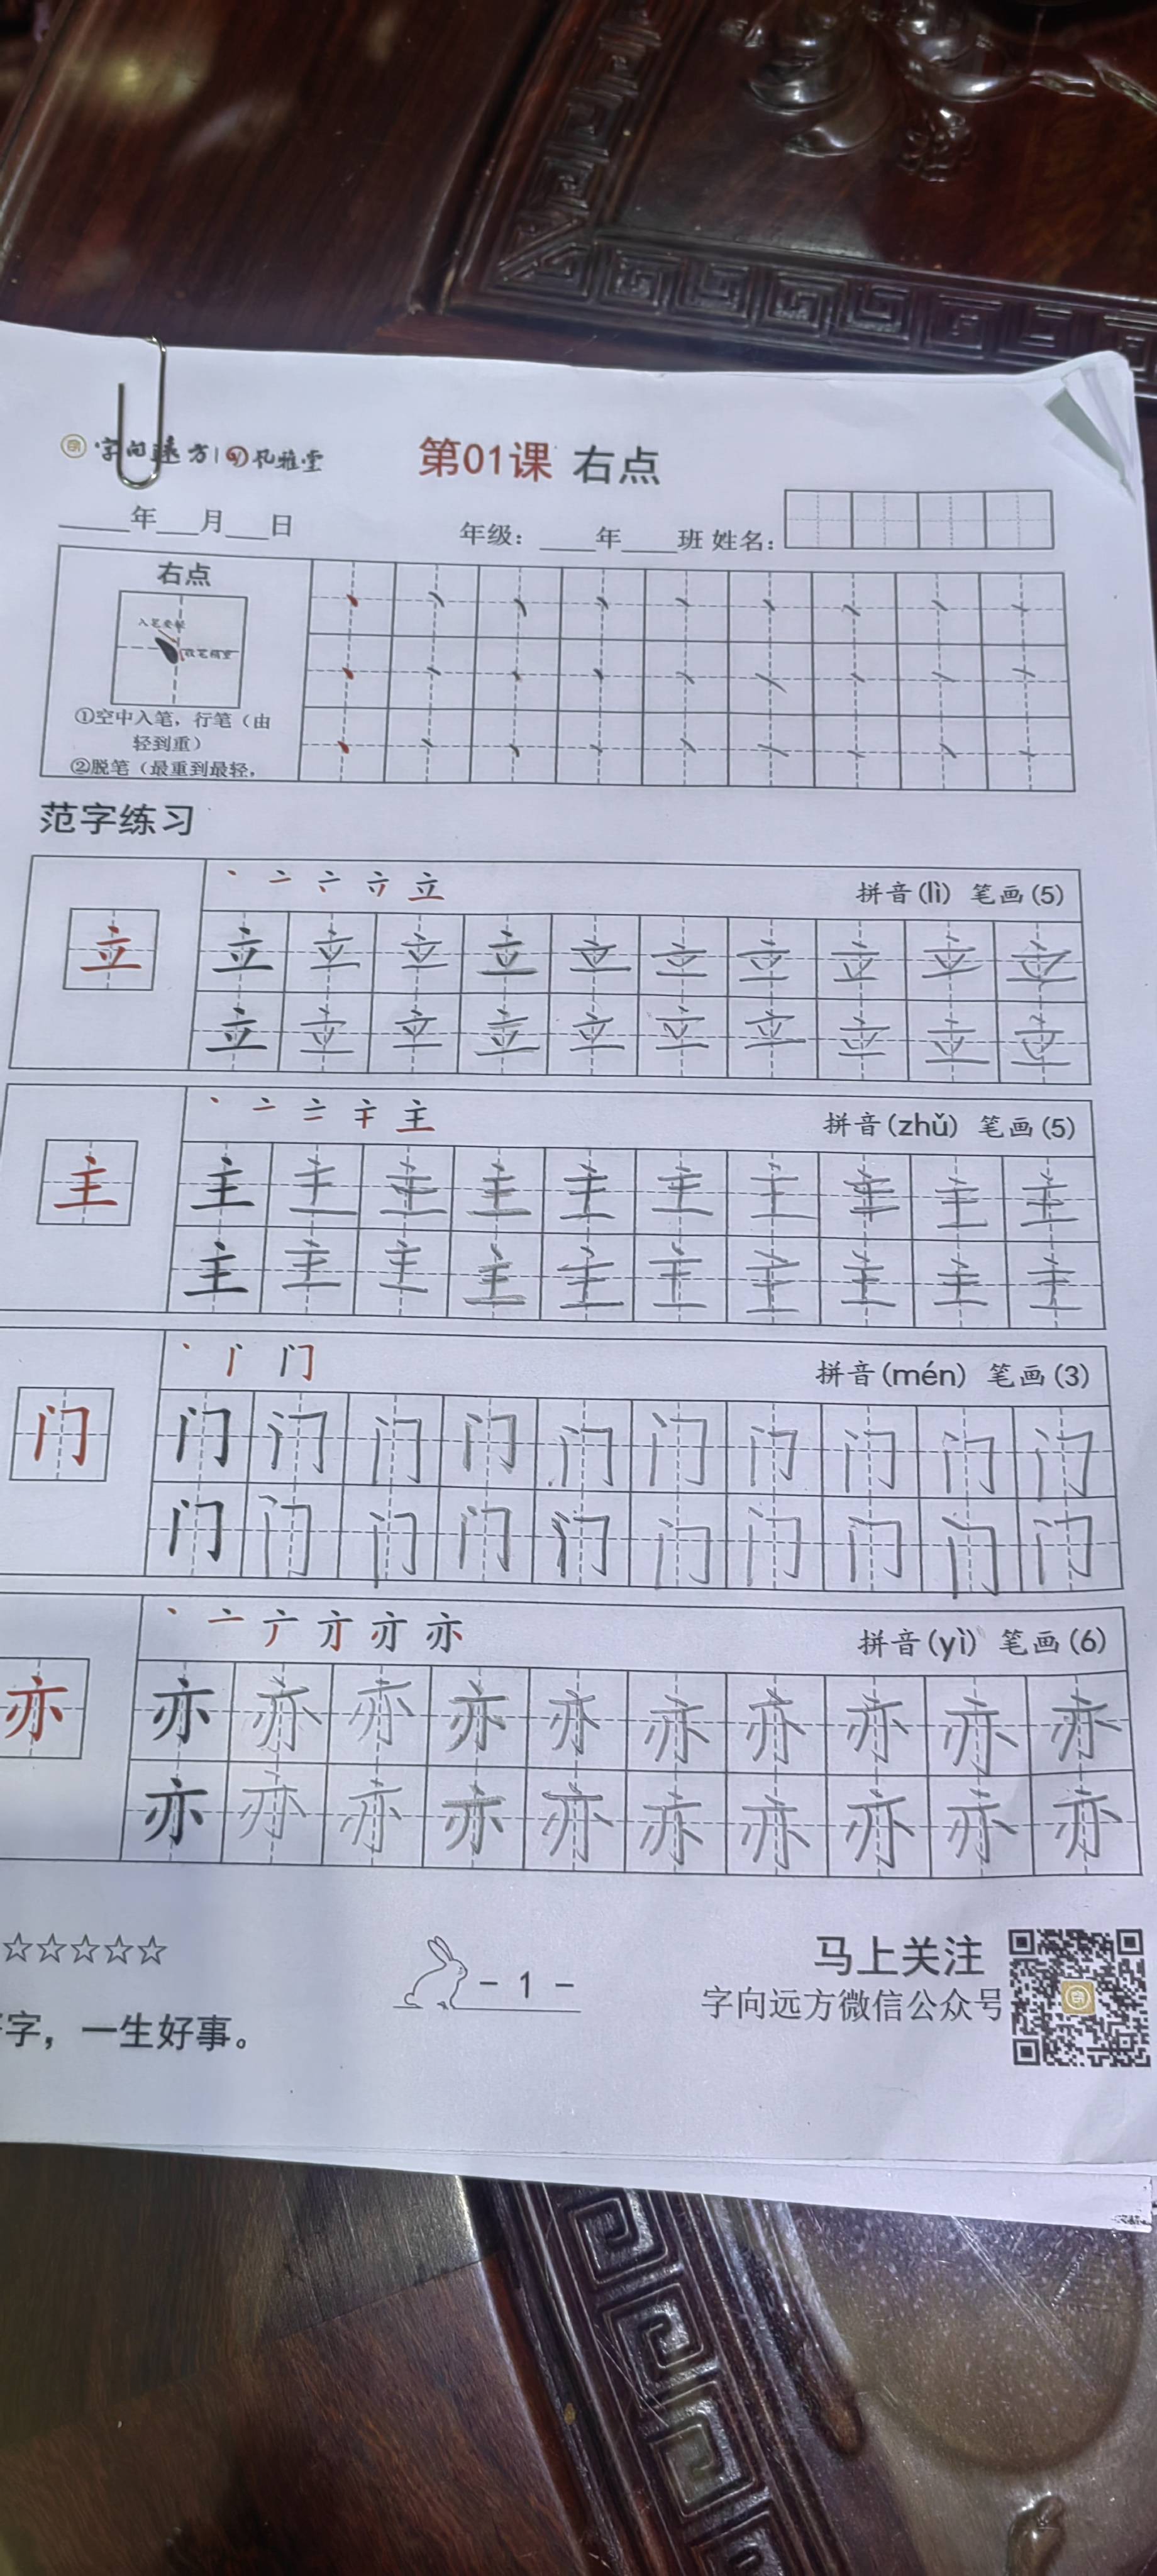 字向远方 | 风雅堂
第01课 右点
____年___月___日 年级：____年____班 姓名：
右点
入笔要轻
收笔稍重
①空中入笔，行笔（由
轻到重）
②脱笔（最重到最轻，
范字练习
立 拼音(lì) 笔画(5)
立
立 立 立 立 立 立 立 立 立 立
立 立 立 立 立 立 立 立 立 立
主 拼音(zhǔ) 笔画(5)
主
主 主 主 主 主 主 主 主 主 主
主 主 主 主 主 主 主 主 主 主
门 拼音(mén) 笔画(3)
门
门 门 门 门 门 门 门 门 门 门
门 门 门 门 门 门 门 门 门 门
亦 拼音(yì) 笔画(6)
亦
亦 亦 亦 亦 亦 亦 亦 亦 亦 亦
亦 亦 亦 亦 亦 亦 亦 亦 亦 亦
☆☆☆☆☆
- 1 -
马上关注
字向远方微信公众号
字，一生好事。